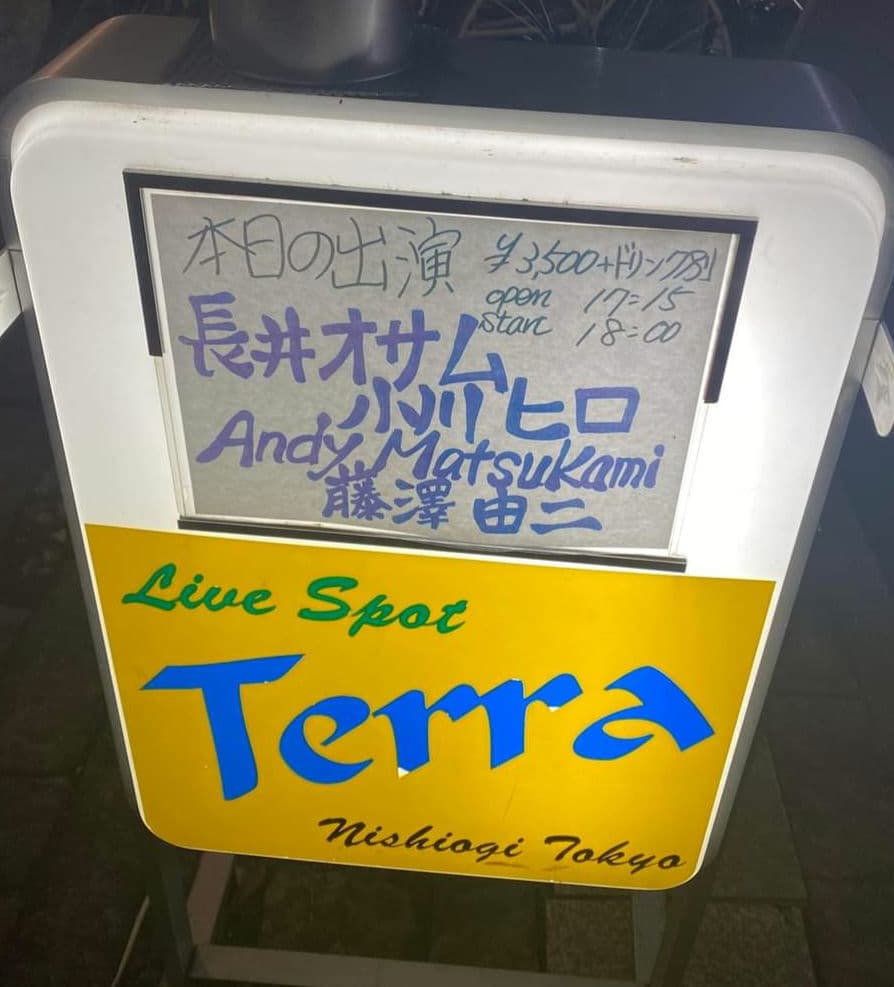 本日の出演
¥3,500+ドリンク別
open 17:15
start 18:00
長井オサム
小川ヒロ
Andy Matsukami
藤澤 由二
Live Spot
Terra
Nishiogi Tokyo